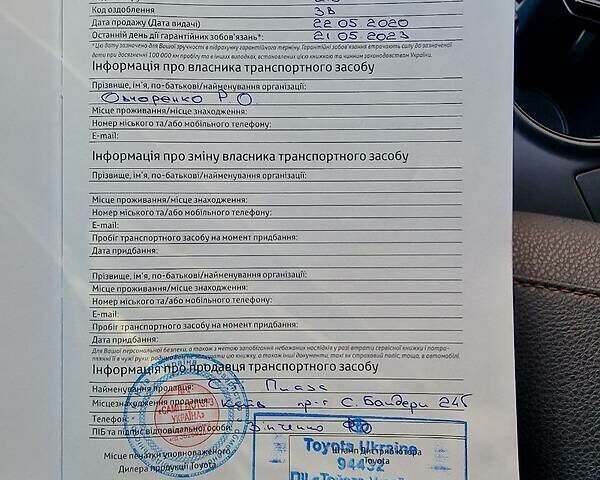 Код оздоблення 3В
Дата продажу (Дата видачі) 22 05 2020
Останній день дії гарантійних зобов'язань* 21 05 2023
*Цю дату зазначено для Вашої зручності в підрахунку гарантійного терміну. Гарантійні зобов'язання втрачають силу до зазначеної
дати при досягненні 100 000 км пробігу та в інших випадках, встановлених цією книжкою та чинним законодавством України.
Інформація про власника транспортного засобу
Прізвище, ім'я, по-батькові/найменування організації:
Овчаренко Р.О
Місце проживання/місце знаходження:
Номер міського та/або мобільного телефону:
E-mail:
Інформація про зміну власника транспортного засобу
Прізвище, ім'я, по-батькові/найменування організації:
Місце проживання/місце знаходження:
Номер міського та/або мобільного телефону:
E-mail:
Пробіг транспортного засобу на момент придбання:
Дата придбання:
Прізвище, ім'я, по-батькові/найменування організації:
Місце проживання/місце знаходження:
Номер міського та/або мобільного телефону:
E-mail:
Пробіг транспортного засобу на момент придбання:
Дата придбання:
Для Вашої персональної безпеки, а також з метою запобігання небажаних наслідків у разі втрати сервісної книжки і потра-
пляння її в чужі руки, радимо не залишати цю книжку, а також інші документи, такі як страховий поліс, тощо, в автомобілі.
Інформація про продавця транспортного засобу
Найменування продавця: Плаза
Місцезнаходження продавця: пр-т С. Бандери 24б
Телефон:
ПІБ та підпис відповідальної особи:
Місце печатки уповноваженого
Дилера продукції Toyota
«САМІТ МОТОРЗ
УКРАЇНА»
Toyota Ukraine
Штамп Дистриб'ютора
Toyota
94432